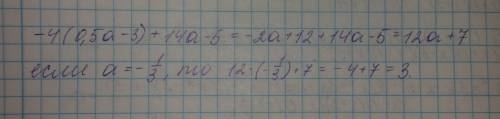 -4(0,5a-3)+14a-5=-2a+12+14a-5=12a+7
если a=-1/3, то 12·(-1/3)+7=-4+7=3.